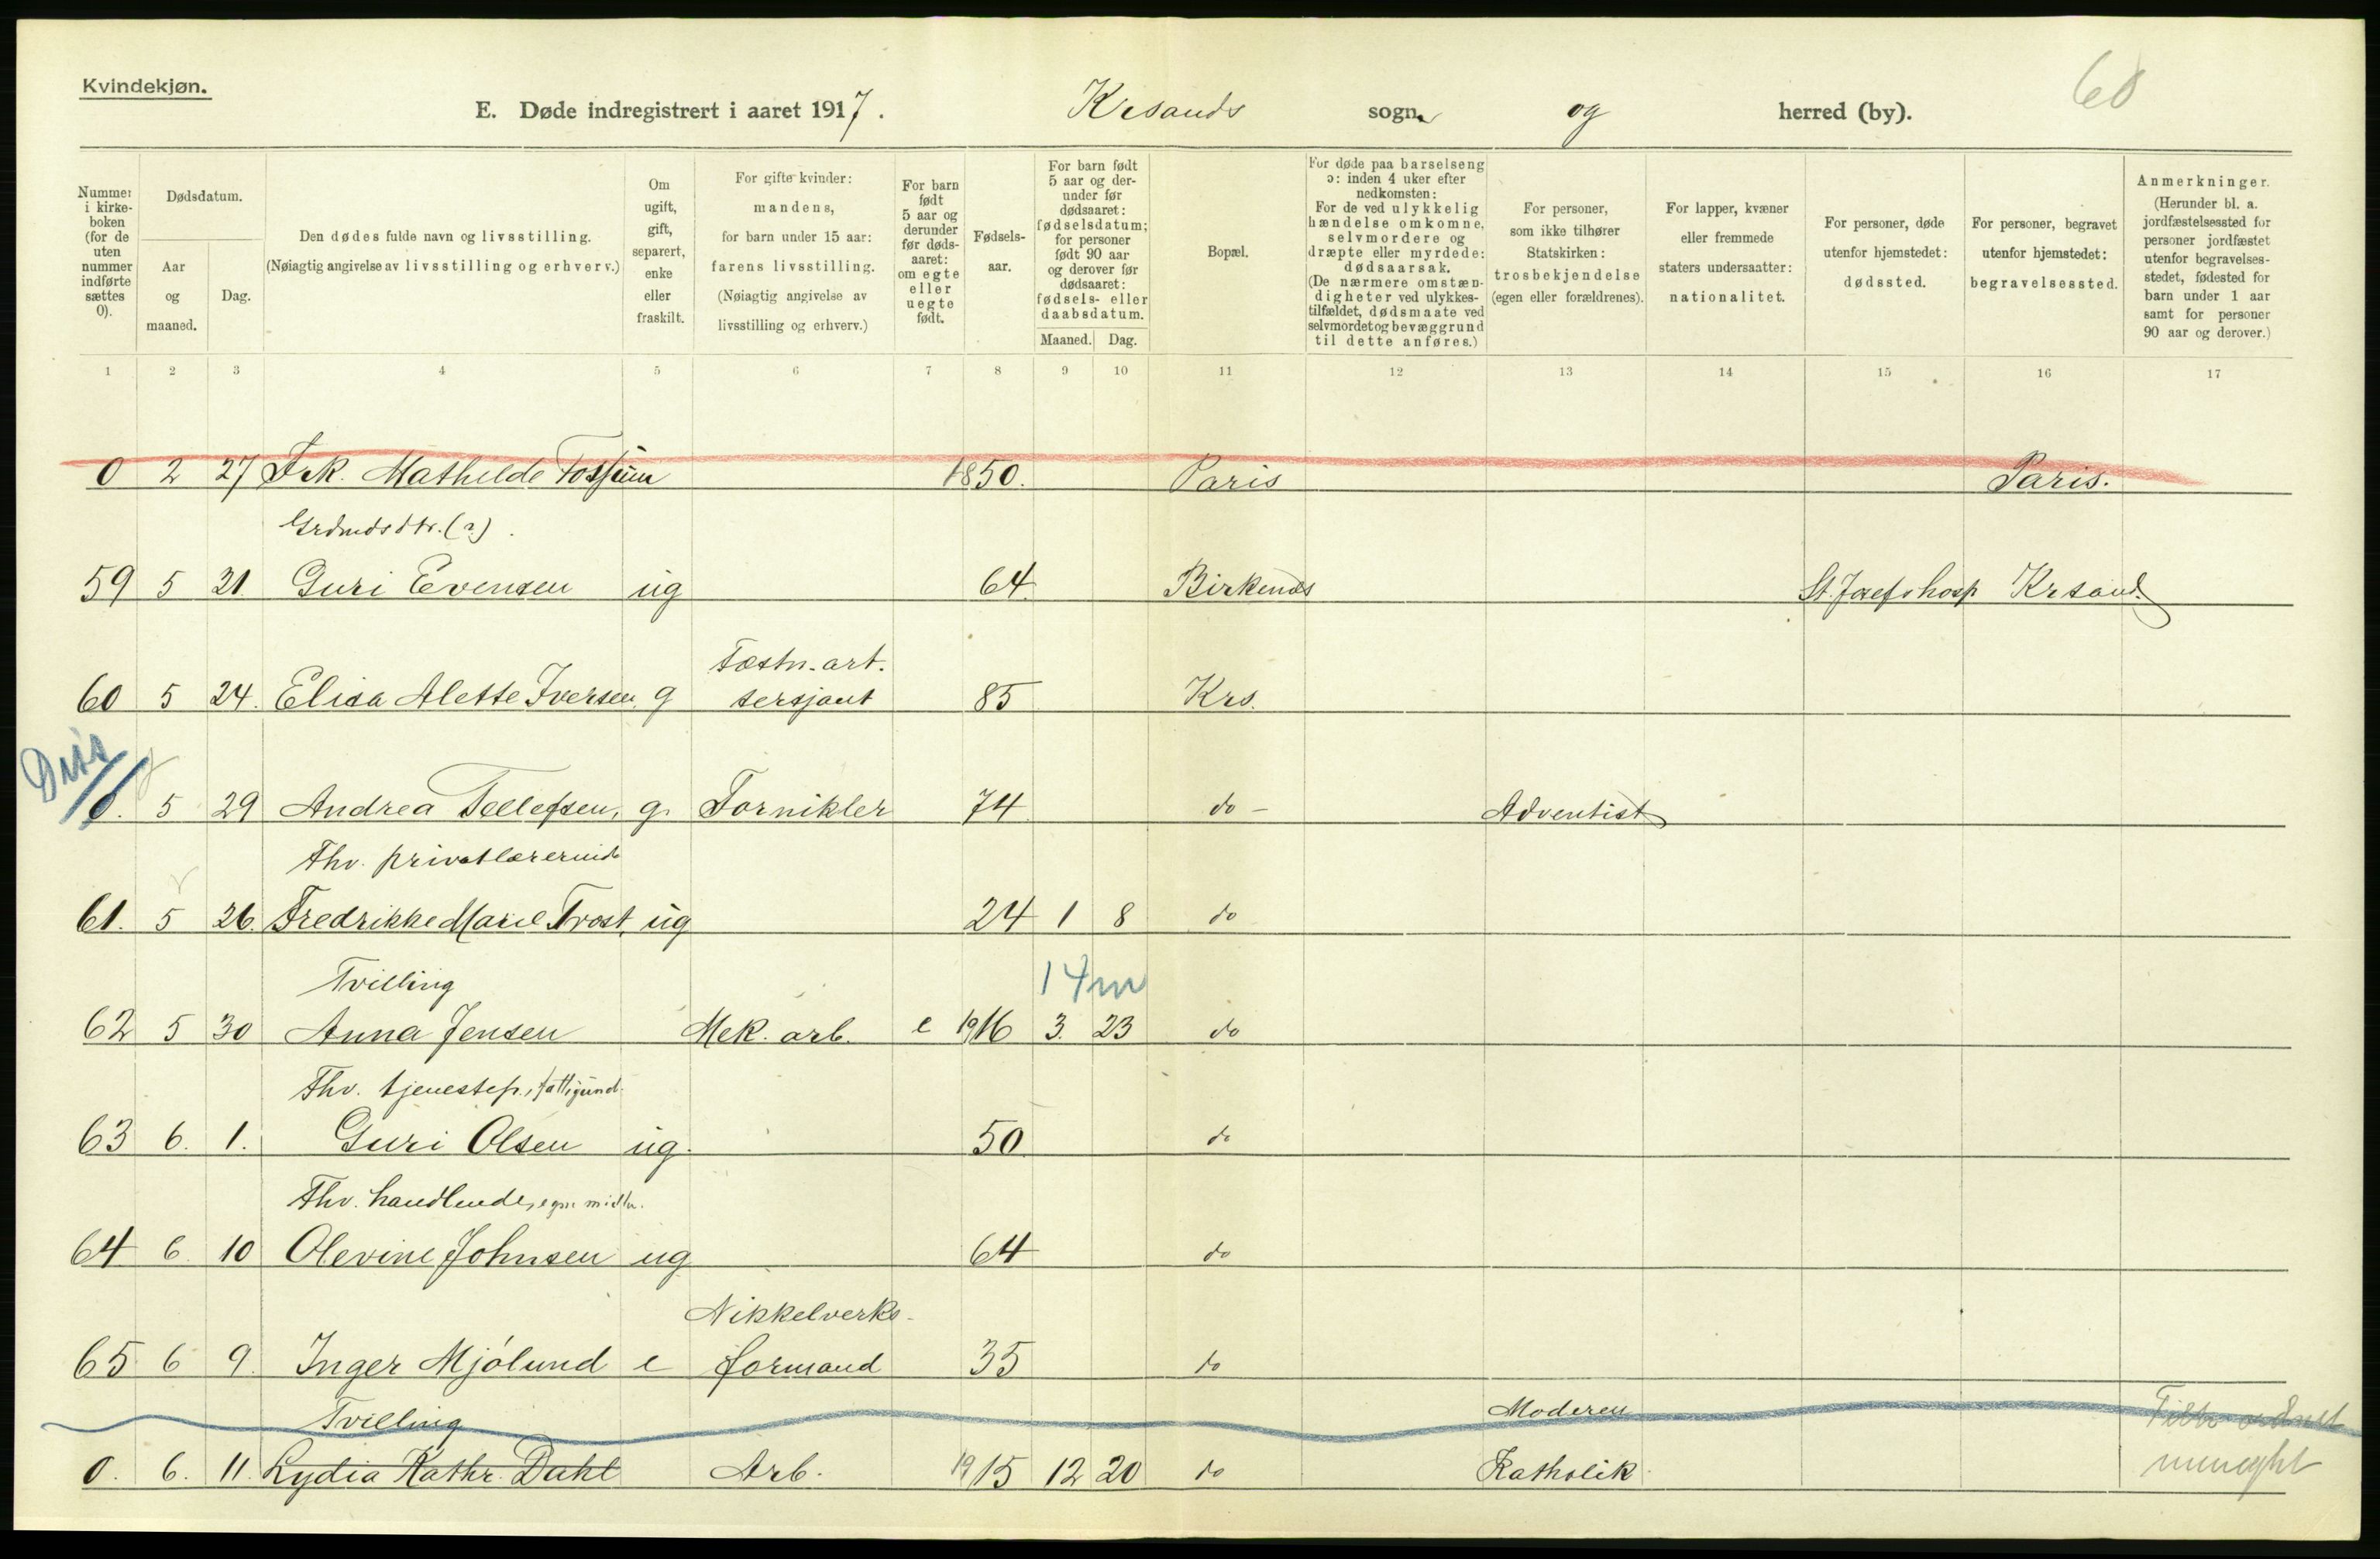 Kvindekjøn.
60
E. Døde indregistrert i aaret 1917. Krsands sogn og herred (by).
Nummer i kirkeboken (for de uten nummer indførte sættes 0).
Dødsdatum.
Aar og maaned.
Dag.
Den dødes fulde navn og livsstilling.
(Nøiagtig angivelse av livsstilling og erhverv.)
Om ugift, gift, separert, enke eller fraskilt.
For gifte kvinder: mandens, for barn under 15 aar: farens livsstilling.
(Nøiagtig angivelse av livsstilling og erhverv.)
For barn født 5 aar og derunder før dødsaaret: om egte eller uegte født.
Fødselsaar.
For barn født 5 aar og derunder før dødsaaret: fødselsdatum; for personer født 90 aar og derover før dødsaaret: fødsels- eller daabsdatum.
Maaned. Dag.
Bopæl.
For døde paa barselseng ɔ: inden 4 uker efter nedkomsten:
For de ved ulykkelig hændelse omkomne, selvmordere og dræpte eller myrdede: dødsaarsak.
(De nærmere omstændigheter ved ulykkestilfældet, dødsmaate ved selvmordet og bevæggrund til dette anføres.)
For personer, som ikke tilhører Statskirken: trosbekjendelse (egen eller forældrenes).
For lapper, kvæner eller fremmede staters undersaatter: nationalitet.
For personer, døde utenfor hjemstedet: dødssted.
For personer, begravet utenfor hjemstedet: begravelsessted.
Anmerkninger.
(Herunder bl. a. jordfæstelsessted for personer jordfæstet utenfor begravelsesstedet, fødested for barn under 1 aar samt for personer 90 aar og derover.)
1 2 3 4 5 6 7 8 9 10 11 12 13 14 15 16 17
0 2 27 Frk. Mathilde Fossum 1850. Paris Paris.
Grdmdsdtr. (?).
59 5 21 Guri Evensen ug 64 Birkenæs St. Josefs hosp Krsand.
Fæstn. art.
60 5 24. Elisa Alette Iversen, g sersjant 85 Krs.
Diss
0. 5 29 Andrea Tellefsen, g. Fornikler 74 do - Adventist
Fhv. privatlærerinde
61. 5 26. Fredrikke Marie Trost, ug 24 1 8 do
Tvilling 14 m
62 5 30 Anna Jensen Mek. arb. e 1916 3. 23 do
Fhv. tjenestep., fattigund.
63 6. 1. Guri Olsen ug. 50 do
Fhv. handlende, egne midler.
64 6 10 Olevine Johnsen ug 64 do
Nikkelverks-
65 6 9. Inger Mjølund e formand 35 do
Tvilling Moderen
0. 6. 11. Lydia Kathr. Dahl Arb. 1915 12 20 do Katholik